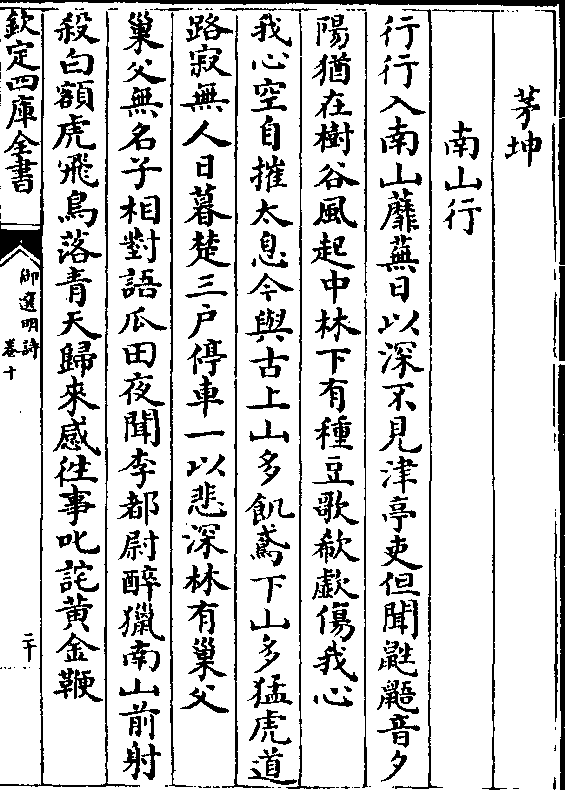 茅坤
南山行
行行入南山蘼蕪日以深不見津亭吏但聞鼪鼯音夕
陽猶在樹谷風起中林下有種豆歌欷歔傷我心
我心空自摧太息今與古上山多飢鳶下山多猛虎道
路寂無人日暮楚三戶停車一以悲深林有巢父
巢父無名子相對語瓜田夜聞李都尉醉獵南山前射
殺白額虎飛鳥落青天歸來感往事叱詫黃金鞭
欽定四庫全書
御選明詩
卷十
二十